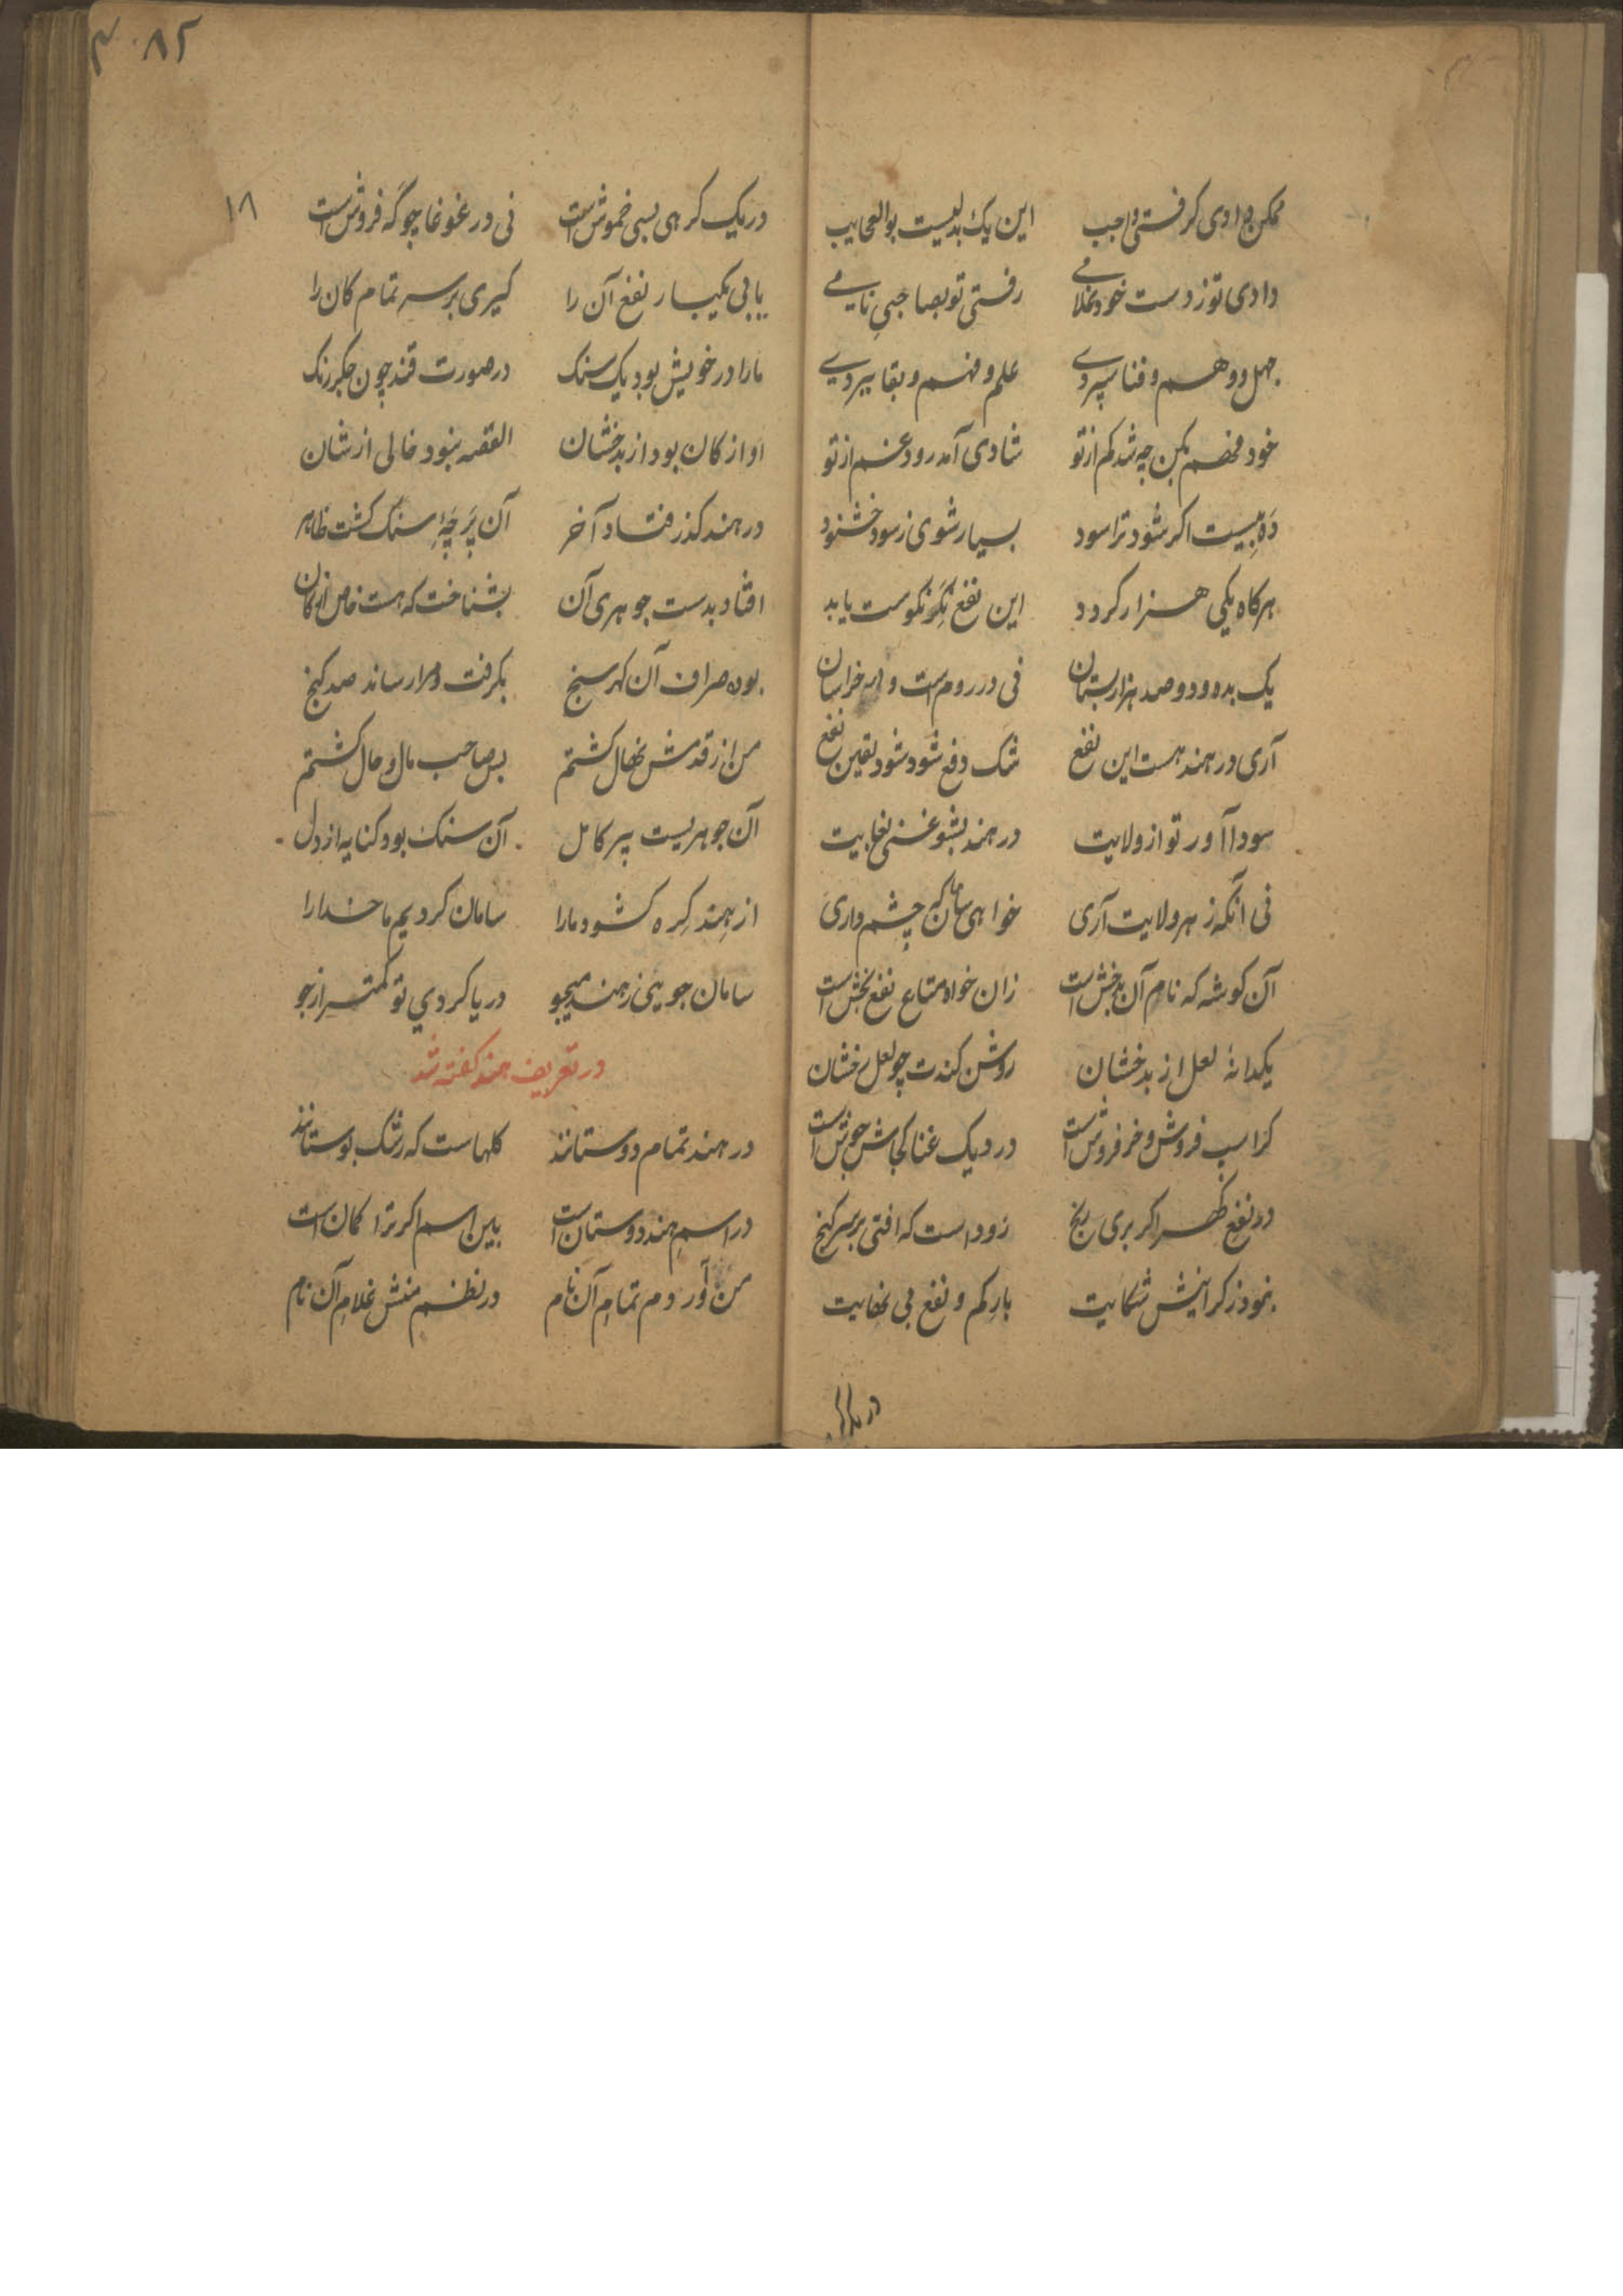 ممکن دادی گرفتی واجب این یک بدلیست بوالعجایب
دادی تو ز دست خود غلامی رفتی تو بصاحبی نامی
جهل و وهم و فنا سپردی علم و فهم و بقا ببردی
خود فهم بکن چه شد کم از تو شادی آمد رود غم از تو
ده بیست اکر شود ترا سود بسیار شوی ز سود خشنود
هرکاه یکی هزار کردد این نفع نکو نکوست یابد
یک بده و دو صد هزار بستان نی در روم است و خراسان
آری در هند هست این نفع شک دفع شود شود یقین نفع
سودا آور تو از ولایت در هند بشو غنی بغایت
نی آنکه ز هر ولایت آری خواهی سامان که چشم داری
آن کوشه که نام آن بدخش است زان خواه متاع نفع بخش است
یکدانهٔ لعل از بدخشان روشن کندت چو لعل رخشان
کر اسپ فروش و خر فروش است در دیک غنا کجاش جوش است
در نفع کهر اکر بری رنج زود است که افتی بر سر کنج
نبود ز کرانیش شکایت بار کم و نفع بی نهایت
۸۲
۱۸
در یک کرهی بسی خموش است نی در غوغا چو که فروش است
یابی یکبار نفع آن را کیری بر سر تمام کان را
ما را در خویش بود یک سنک در صورت قند چون جکر رنک
او از کان بود از بدخشان القصه نبود خالی از شان
در هند کذر فتاد آخر آن پرچهٔ سنک کشت ظاهر
افتاد بدست جوهری آن بشناخت که هست خاص از کان
بوده صراف آن کهر سنج بکرفت مرا رساند صد کنج
من از قدمش نهال کشتم بس صاحب مال و حال کشتم
آن جوهریست پیر کامل آن سنک بود کنایه از دل
از هند کره کشود ما را سامان کردیم ما خدا را
سامان جویی ز هند میجو دریا کردی تو کمتر از جو
در تعریف هند کفته شد
در هند تمام دوستانند کلهاست که رشک بوستانند
در اسم هند دوستان است بین اسم اکر ترا کمان است
من آوردم تمام آن نام در نظم منش غلام آن نام